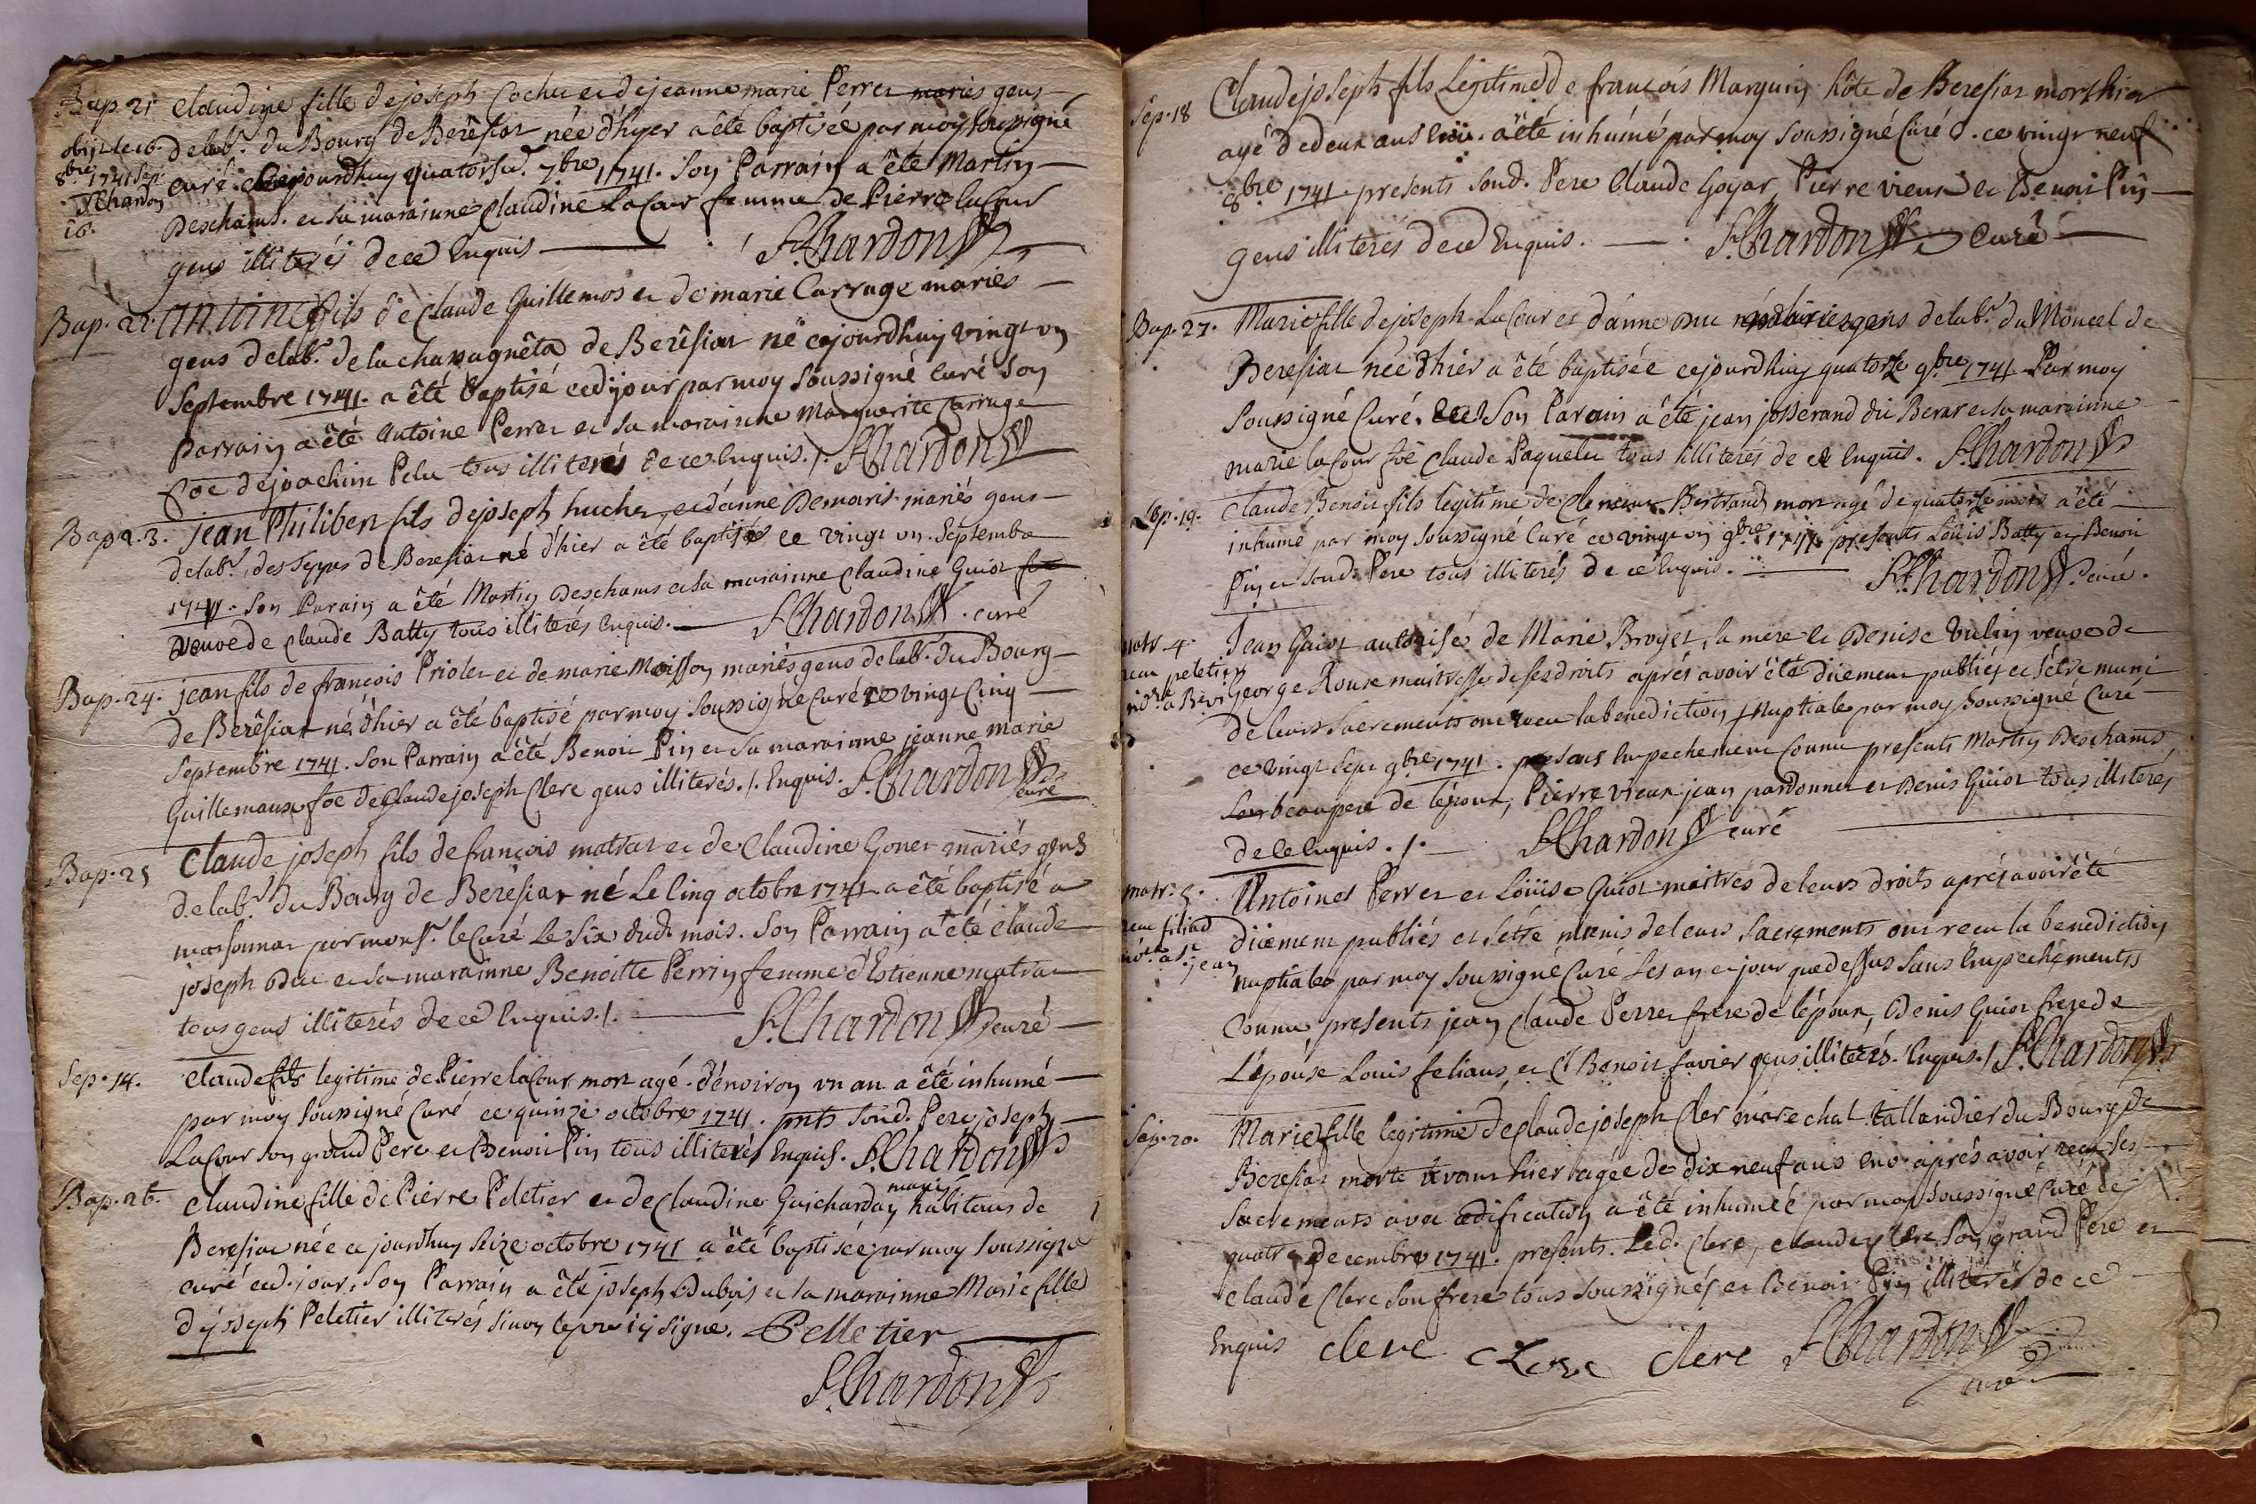 Bap. 21 Claudine fille de joseph Cocher et de jeanne marie Perret mariés gens
de lab.r du Bourg de Berêsiat née d'hyer a êté baptisée par moy soussigné
obijt le 16.
8bre 1741 Sep.
Chardon
16.
curé cejourdhuy quatorse. 7bre 1741. Son Parrain a êté Martin
Deschams. et sa marainne Claudine LaCour femme de Pierre laCour
gens illiterés de ce Enquis S.Chardon
Bap. 22. Antoine fils de Claude Guillemos et de marie Carruge mariés
gens de lab.r de la chassagnêta de Berêsiat né cejourdhuy vingt un
Septembre 1741. a êté baptisé ced. jour par moy soussigné Curé Son
Parrain a êté Antoine Perret et sa marainne Marguerite Carruge
foe de joachim Pelu tous illiterés de ce Enquis. /. S.Chardon
Bap. 23. jean Philibert fils de joseph huchet et d'anne Demaris mariés gens
de lab.r des Seyas de Beresiat né d'hier a êté baptisé ce vingt un. Septembre
1741. Son Parain a êté Martin Deschams et sa marainne Claudine Guiot
veuve de Claude Batty tous illiterés Enquis. S.Chardon. curé
Bap. 24. jean fils de françois Priolet et de marie Moisson mariés gens de lab.r du Bourg
de Berêsiat né d'hier a êté baptisé par moy Soussigné Curé ce vingt cinq
Septembre 1741. Son Parrain a êté Benoit Pin et Sa marainne jeanne marie
Guillemaux foe de Claude joseph Clere gens illiterés. /. Enquis. S.Chardon curé
Bap. 25 Claude joseph fils de françois matrat et de Claudine Gonet mariés gens
de lab.r du Bourg de Berêsiat né Le Cinq octobre 1741 a êté baptisé a
marsonnat par mons.r le Curé Le Six dud. mois. Son Parrain a êté claude
joseph Duc et sa marainne Benoitte Perrin femme d'Estienne matrat
tous gens illiterés de ce Enquis. /. S.Chardon curé
Sep. 14. Claude fils legitime de Pierre laCour mort agé d'environ un an a êté inhumé
par moy soussigné Curé ce quinze octobre 1741. pnts Soud. Pere joseph
LaCour Son grand Pere et Benoit Pin tous illiterés Enquis. S.Chardon
Bap. 26. Claudine fille de Pierre Peletier et de Claudine Guichardan mariés habitans de
Beresiat née ce jourdhuy Seize octobre 1741 a êté baptisée par moy soussigné
curé ced. jour, Son Parrain a êté joseph Dubois et sa marainne Marie fille
de joseph Peletier illiterés sinon le pere icy signé. Pelletier
S.Chardon
Sep. 18 Claude joseph fils Légitime de françois Marguin hôte de Beresiat mort hier
agé de deux ans Env. a êté inhumé par moy soussigné Curé. ce vingt neuf
8bre 1741. presents soud. Pere Claude Goyat, Pierre vieux et Benoit Pin
gens illiterés de ce Enquis. S.Chardon Curé
Bap. 27. Marie fille de joseph LaCour et d'anne Duc mariés gens de lab.r du Moncel de
Beresiat née d'hier a êté baptisée cejourdhuy quatorse 9bre 1741 Par moy
soussigné Curé. Son Parain a êté jean josserand dit Berar et sa marainne
marie laCour foe Claude Paquelet tous illiterés de ce Enquis. S.Chardon
Sep. 19. Claude Benoit fils legitime de Clement Bertrand mort agé de quatorse mois a êté
inhumé par moy Soussigné Curé ce vingt un 9bre 1741. presents Loüis Batty et Benoit
Pin et Soud. Pere tous illiterés de ce Enquis. S.Chardon curé.
matr. 4. Jean Guiot autorisé de Marie Broyer, sa mere et Denise Vulin veuve de
George Roux maitresse de ses droits aprés avoir êté düement publiés et s'etre muni
de leurs Sacrements ont receu la benediction Nuptiale par moy Soussigné Curé
ce vingt sept 9bre 1741. sans Empechement Connu presents Martin Deschams
beaupere de l'époux, Pierre vieux jean pardonnet et Denis Guiot tous illiterés
de ce Enquis. /. S.Chardon curé
matr. 5. Antoine Perret et Loüise Guiot maitres de leurs droits aprés avoir êté
düement publiés et s'etre munis de leurs Sacrements ont receu la benediction
nuptiale par moy Soussigné Curé Les an et jour que dessus Sans Empechements
Connu presents jean Claude Perret frere de l'époux, Denis Guiot frere de
L'épouse Louis feliaus, et Cl Benoit favier gens illiterés. Enquis. / S.Chardon
Sep. 20. Marie fille legitime de Claude joseph Cler marechal tallandier du Bourg de
Beresiat morte avant hier agée de dix neuf ans Env. aprés avoir receu ses
Sacrements avec edification a êté inhumée par moy soussigné Curé ce
quatre decembre 1741. presents. Led. Clere, claude Clere Son grand Pere et
claude Clere Son frere tous Soussignés et Benoit Pin illiterés de ce
Enquis clere CLere Clere S.Chardon
curé